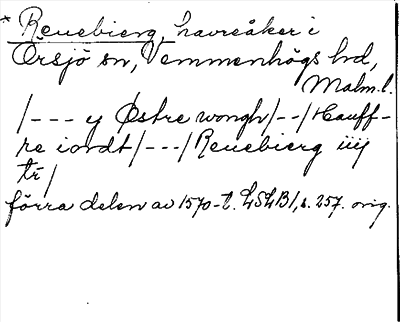 * Renebierg, havreåker i
Örsjö sn, Vemmenhögs hd,
Malm. l.
/--- y Østre wongh/--/Hauff-
re iordt/---/Renebierg iiij
tr/
förra delen av 1570-t. LSLB1, s. 257. orig.